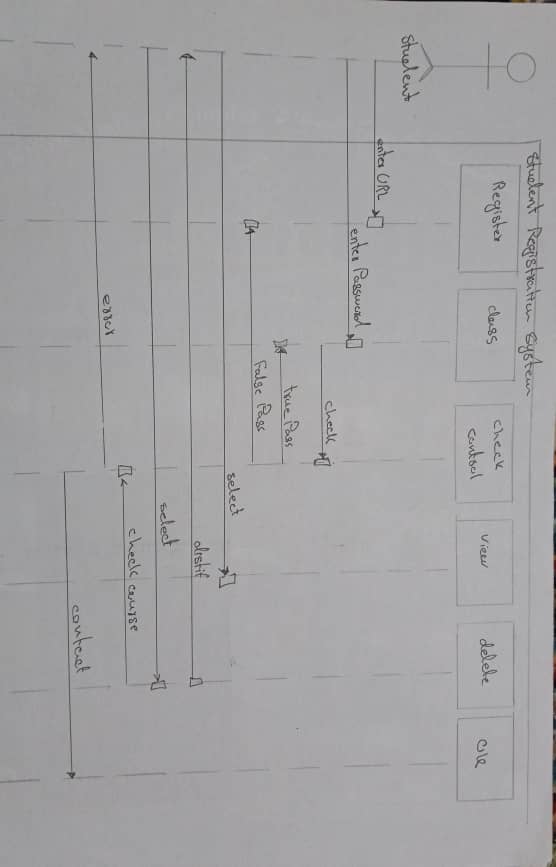 Student Registration System
Register
class
check
control
view
delete
Student
enter URL
enter Password
check
true Pass
False Pass
select
select
check course
error
contact